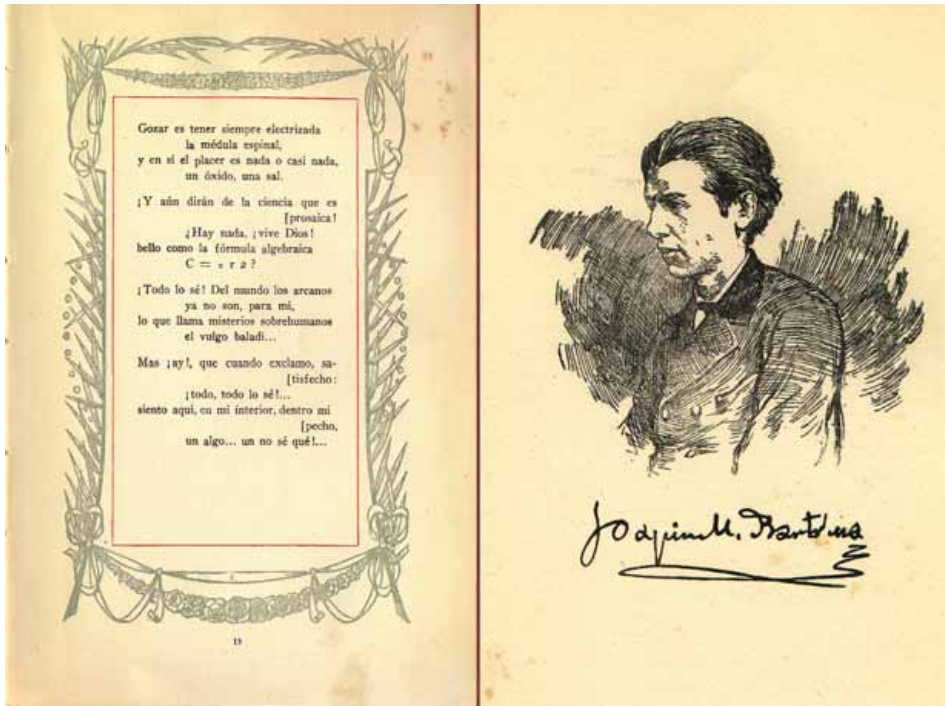 Gozar es tener siempre electrizada
la médula espinal,
y en sí el placer es nada o casi nada,
un óxido, una sal.
¡Y aún dirán de la ciencia que es
[prosaica!
¿Hay nada, ¡vive Dios!
bello como la fórmula algebraica
C = π r 2?
¡Todo lo sé! Del mundo los arcanos
ya no son, para mi,
lo que llama misterios sobrehumanos
el vulgo baladí...
Mas ¡ay!, que cuando exclamo, sa-
[tisfecho:
¡todo, todo lo sé!...
siento aquí, en mi interior, dentro mi
[pecho,
un algo... un no sé qué!...
13
Joaquin M. Bartrina